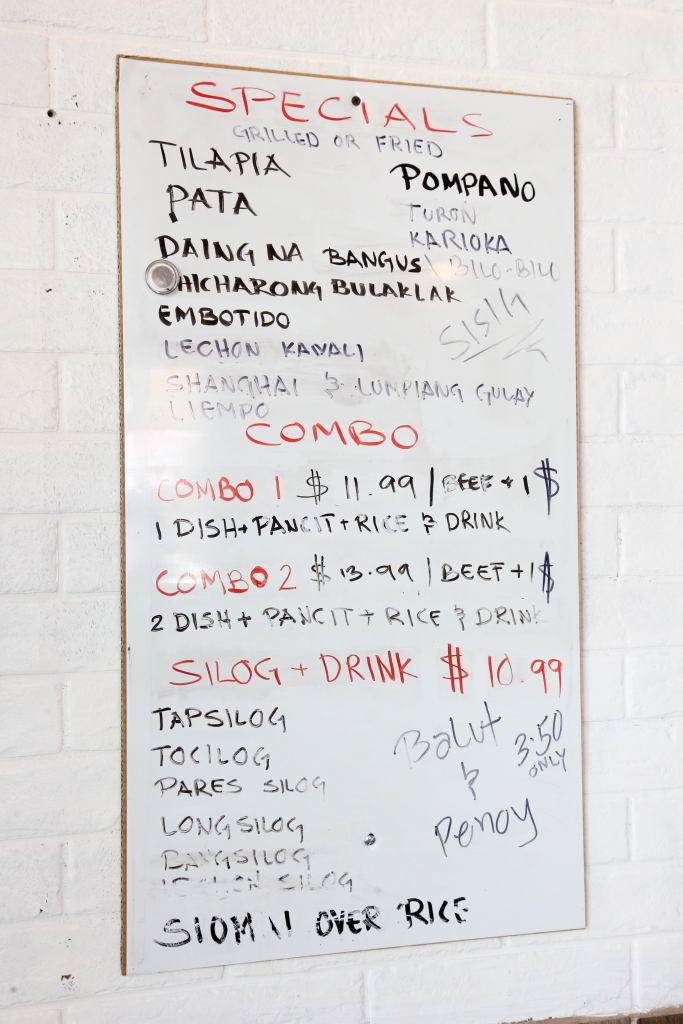 SPECIALS
GRILLED OR FRIED
TILAPIA
POMPANO
PATA
TURON
KARIOKA
DAING NA BANGUS \ BILO-BILO
HICHARONG BULAKLAK
EMBOTIDO
SISIG
LECHON KAWALI
SHANGHAI & LUMPIANG GULAY
LIEMPO
COMBO
COMBO 1 $ 11.99 / BEEF + 1 $
1 DISH + PANCIT + RICE & DRINK
COMBO 2 $ 13.99 / BEEF + 1 $
2 DISH + PANCIT + RICE & DRINK
SILOG + DRINK $ 10.99
TAPSILOG
TOCILOG
PARES SILOG
LONGSILOG
BANGSILOG
SILOG
Balut
&
Penoy
3.50
ONLY
SIOMAI OVER RICE